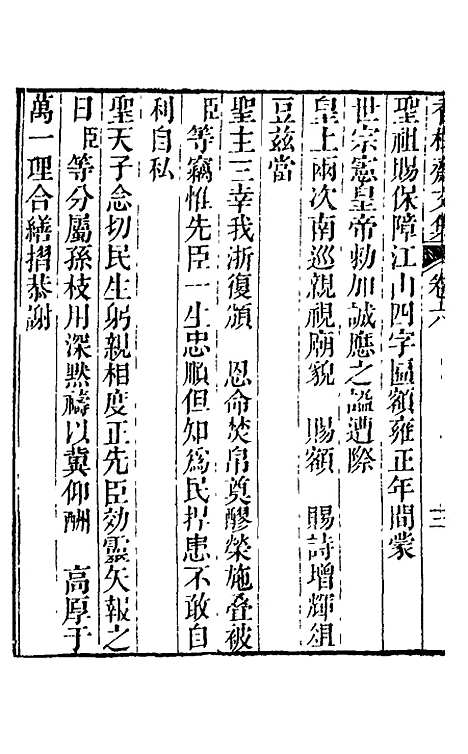 香樹齋文集 卷六 三
聖祖賜保障江山四字匾額雍正年間蒙
世宗憲皇帝勅加誠應之謚遭際
皇上兩次南巡親視廟貌 賜額 賜詩增輝俎
豆茲當
聖主三幸我浙復頒 恩命焚帛奠醪榮施叠被
臣等竊惟先臣一生忠順但知爲民捍患不敢自
利自私
聖天子念切民生躬親相度正先臣効靈矢報之
日臣等分屬孫枝用深默禱以冀仰酬 高厚于
萬一理合繕摺恭謝